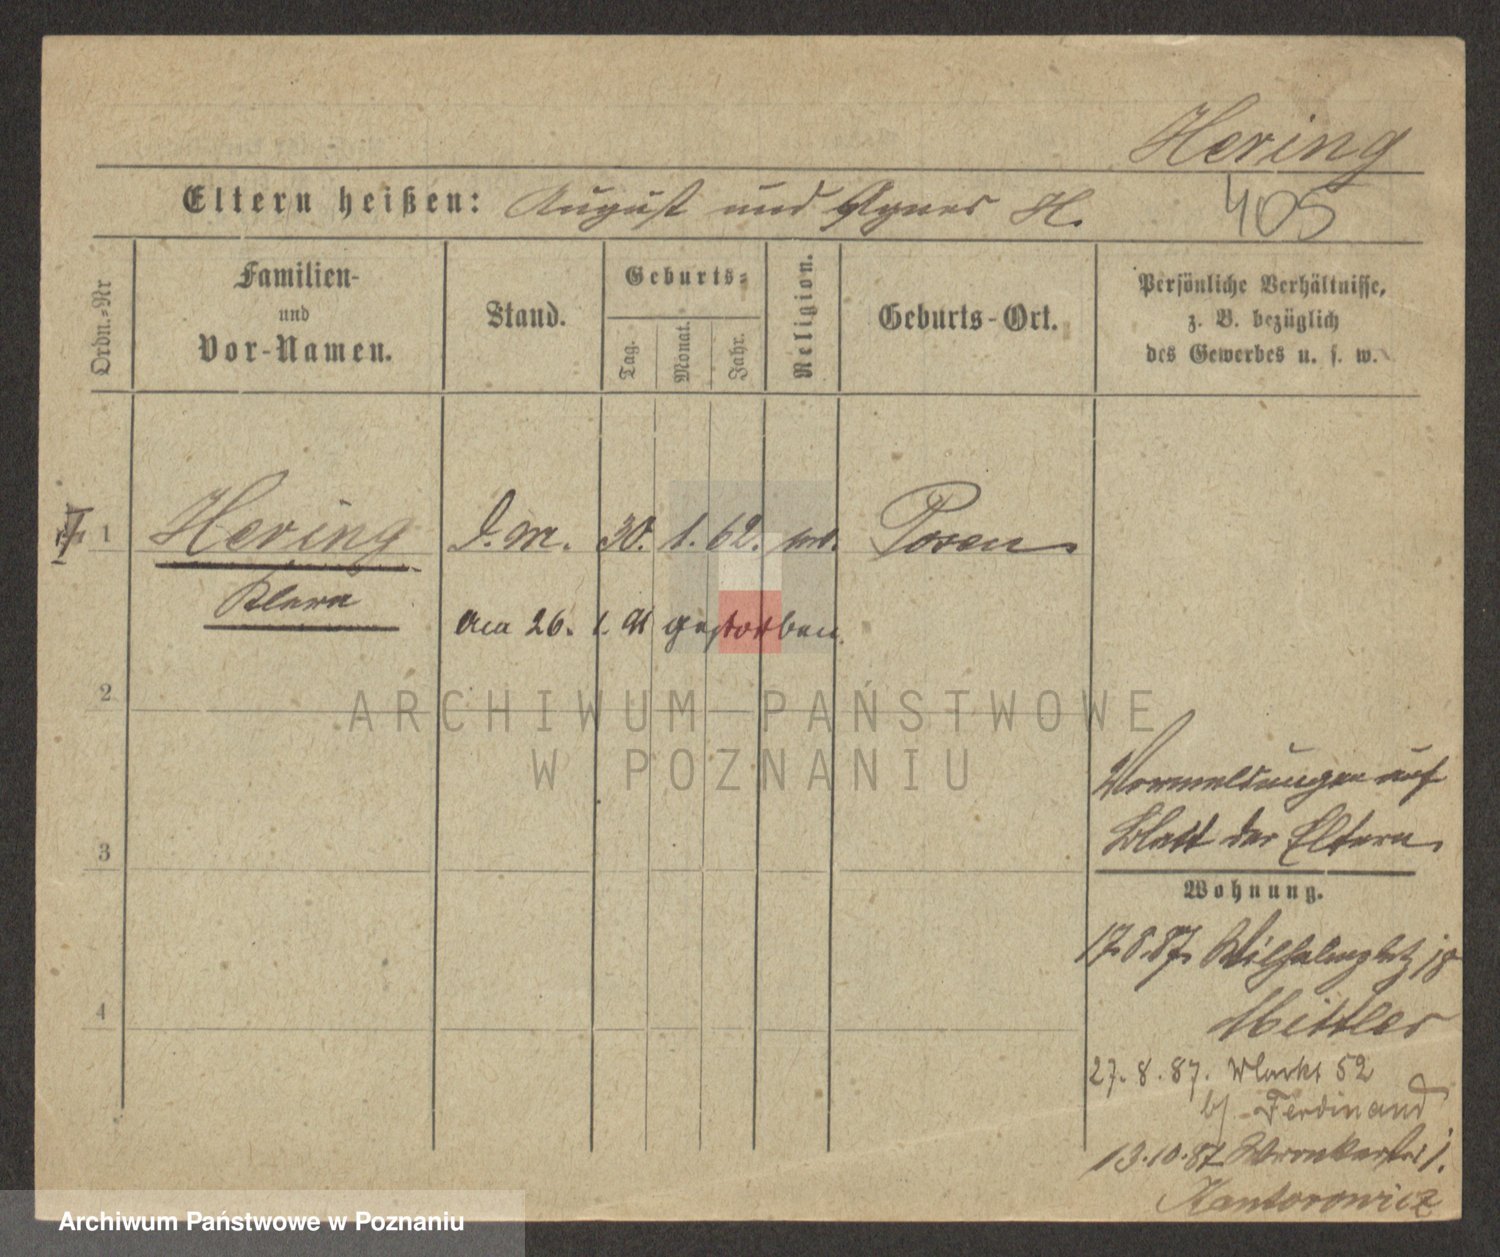 Hering
Eltern heißen: August und Agnes H.
405
Ordn.-Nr
Familien-
und
Vor-Namen.
Stand.
Geburts-
Tag.
Monat.
Jahr.
Religion.
Geburts-Ort.
Persönliche Verhältnisse,
z. B. bezüglich
des Gewerbes u. s. w.
1 Hering D. M. 30. 1. 62. Posen
Klara
am 26. 1. 91 gestorben.
2
ARCHIWUM PAŃSTWOWE
W POZNANIU
Vormeldungen auf
3 Blatt der Eltern
Wohnung.
17.8.87. Wilhelmplatz 18
4 Mittler
27. 8. 87. Markt 52
b/ Ferdinand
13.10.87 Wronkerstr 1.
Kantorowicz
Archiwum Państwowe w Poznaniu